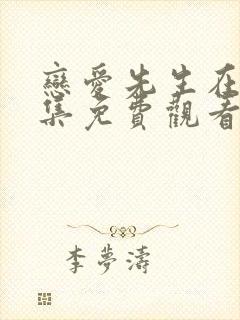 戀愛先生在
集免費觀看
李夢濤